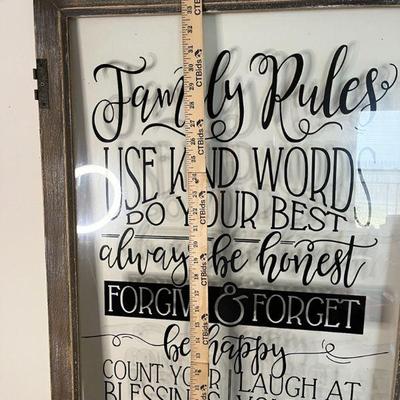 Family Rules
USE KIND WORDS
DO YOUR BEST
always be honest
FORGIVE & FORGET
be happy
COUNT YOUR LAUGH AT
BLESSINGS
CTBids
CTBids
CTBids
CTBids
CTBids